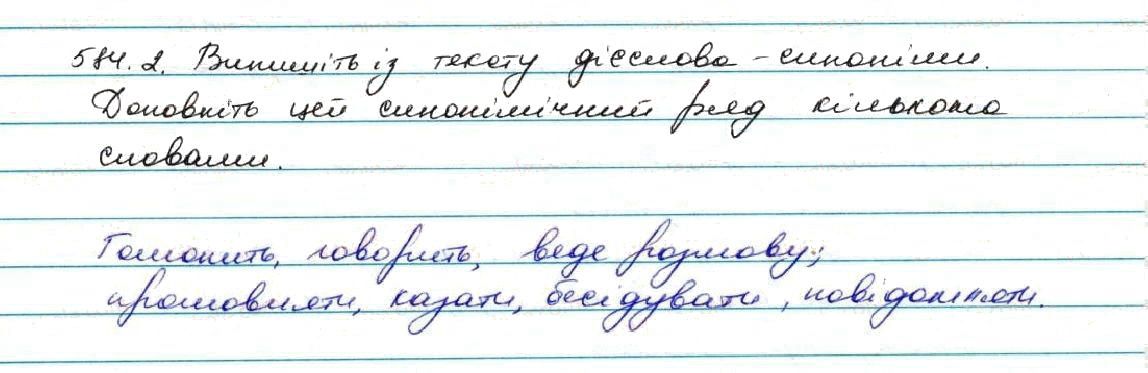 584.2. Випишіть із тексту дієслова-синоніми.
Доповніть цей синонімічний ряд кількома
словами.
Гомонить, говорить, веде розмову;
промовляти, казати, бесідувати, повідомляти.